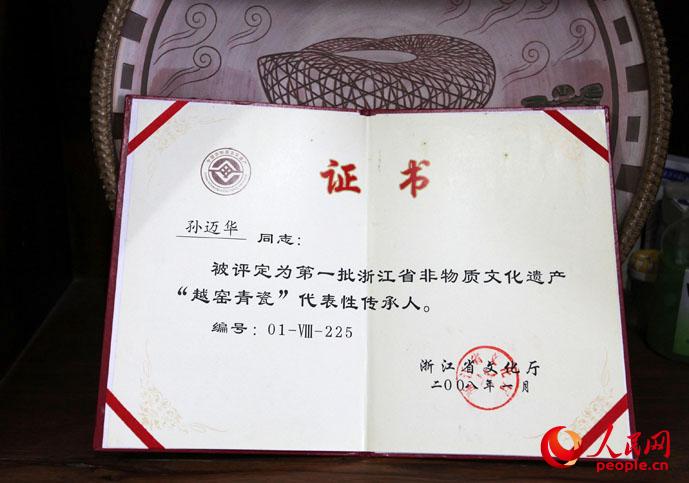 证书
孙迈华 同志：
被评定为第一批浙江省非物质文化遗产
“越窑青瓷”代表性传承人。
编号：01-Ⅷ-225
浙江省文化厅
二〇〇八年一月
人民网
people.cn